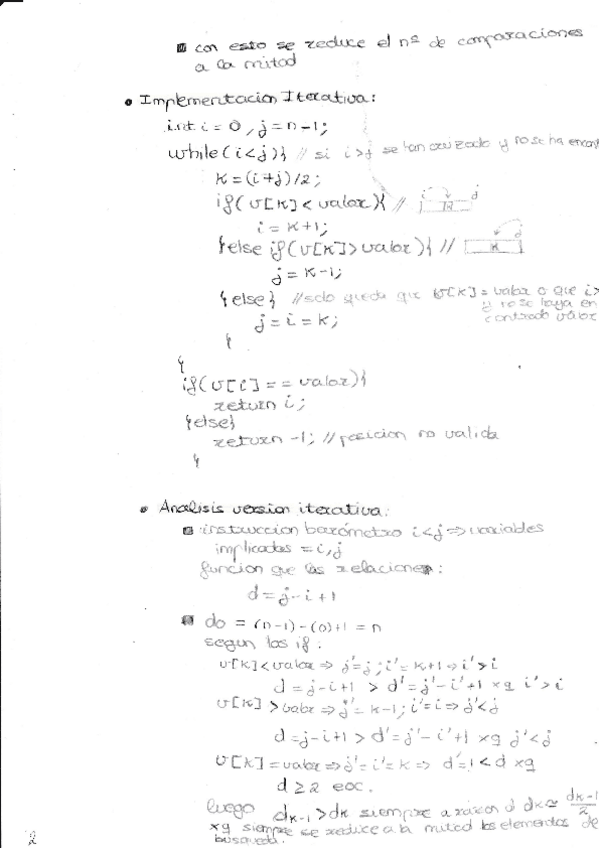 con esto se reduce el nº de comparaciones
a la mitad
• Implementacion Iterativa:
int i = 0, j = n-1;
while(i<j){ // si i>j se han cruzado y no se ha encont
k = (i+j)/2;
if(v[k] < valor){ // i j k
i = k+1;
}else if(v[k]>valor){ // j k
j = k-1;
}else{ //solo queda que v[k] = valor o que i>
y no se haya en
contrado valor
j = i = k;
}
}
if(v[i] == valor){
return i;
}else{
return -1; // posicion no valida
}
• Analisis version iterativa:
instruccion barómetro i<j => variables
implicadas = i,j
funcion que las relacione:
d = j-i+1
do = (n-1)-(0)+1 = n
segun los if:
v[k]<valor => j'=j; i'=k+1 => i'>i
d = j-i+1 > d' = j'-i'+1 xq i'>i
v[k]>valor => j'=k-1; i'=i => j'<j
d=j-i+1 > d'=j'-i'+1 xq j'<j
v[k]=valor => j'=i'=k => d'=1<d xq
d≥2 eoc.
luego dk-1 > dk siempre a razon d dk≃ dk-1/2
xq siempre se reduce a la mitad los elementos de
busqueda.
2